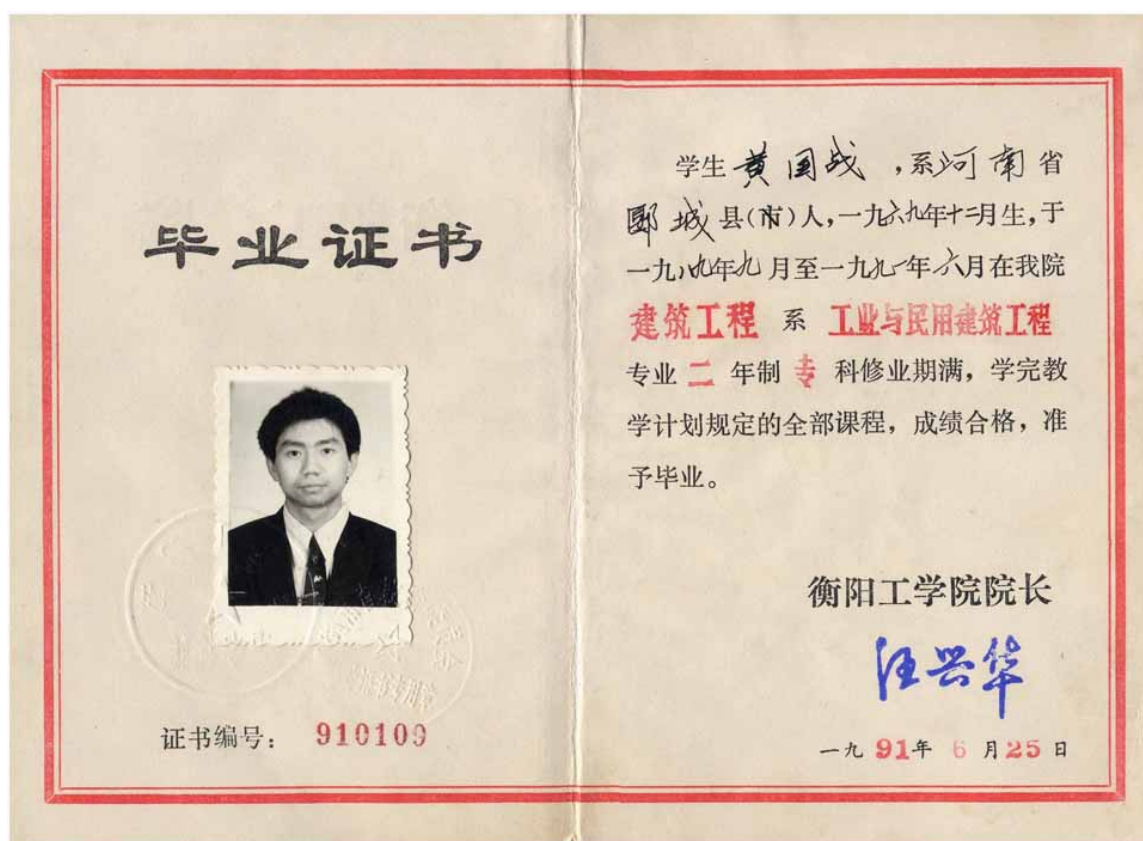 毕业证书
证书编号: 910109
学生 黄国战 ,系河南省
郾城县(市)人,一九六九年十二月生,于
一九八九年九月至一九九一年六月在我院
建筑工程 系 工业与民用建筑工程
专业 二 年制 专 科修业期满，学完教
学计划规定的全部课程，成绩合格，准
予毕业。
衡阳工学院院长
汪兴华
一九91年 6 月25日